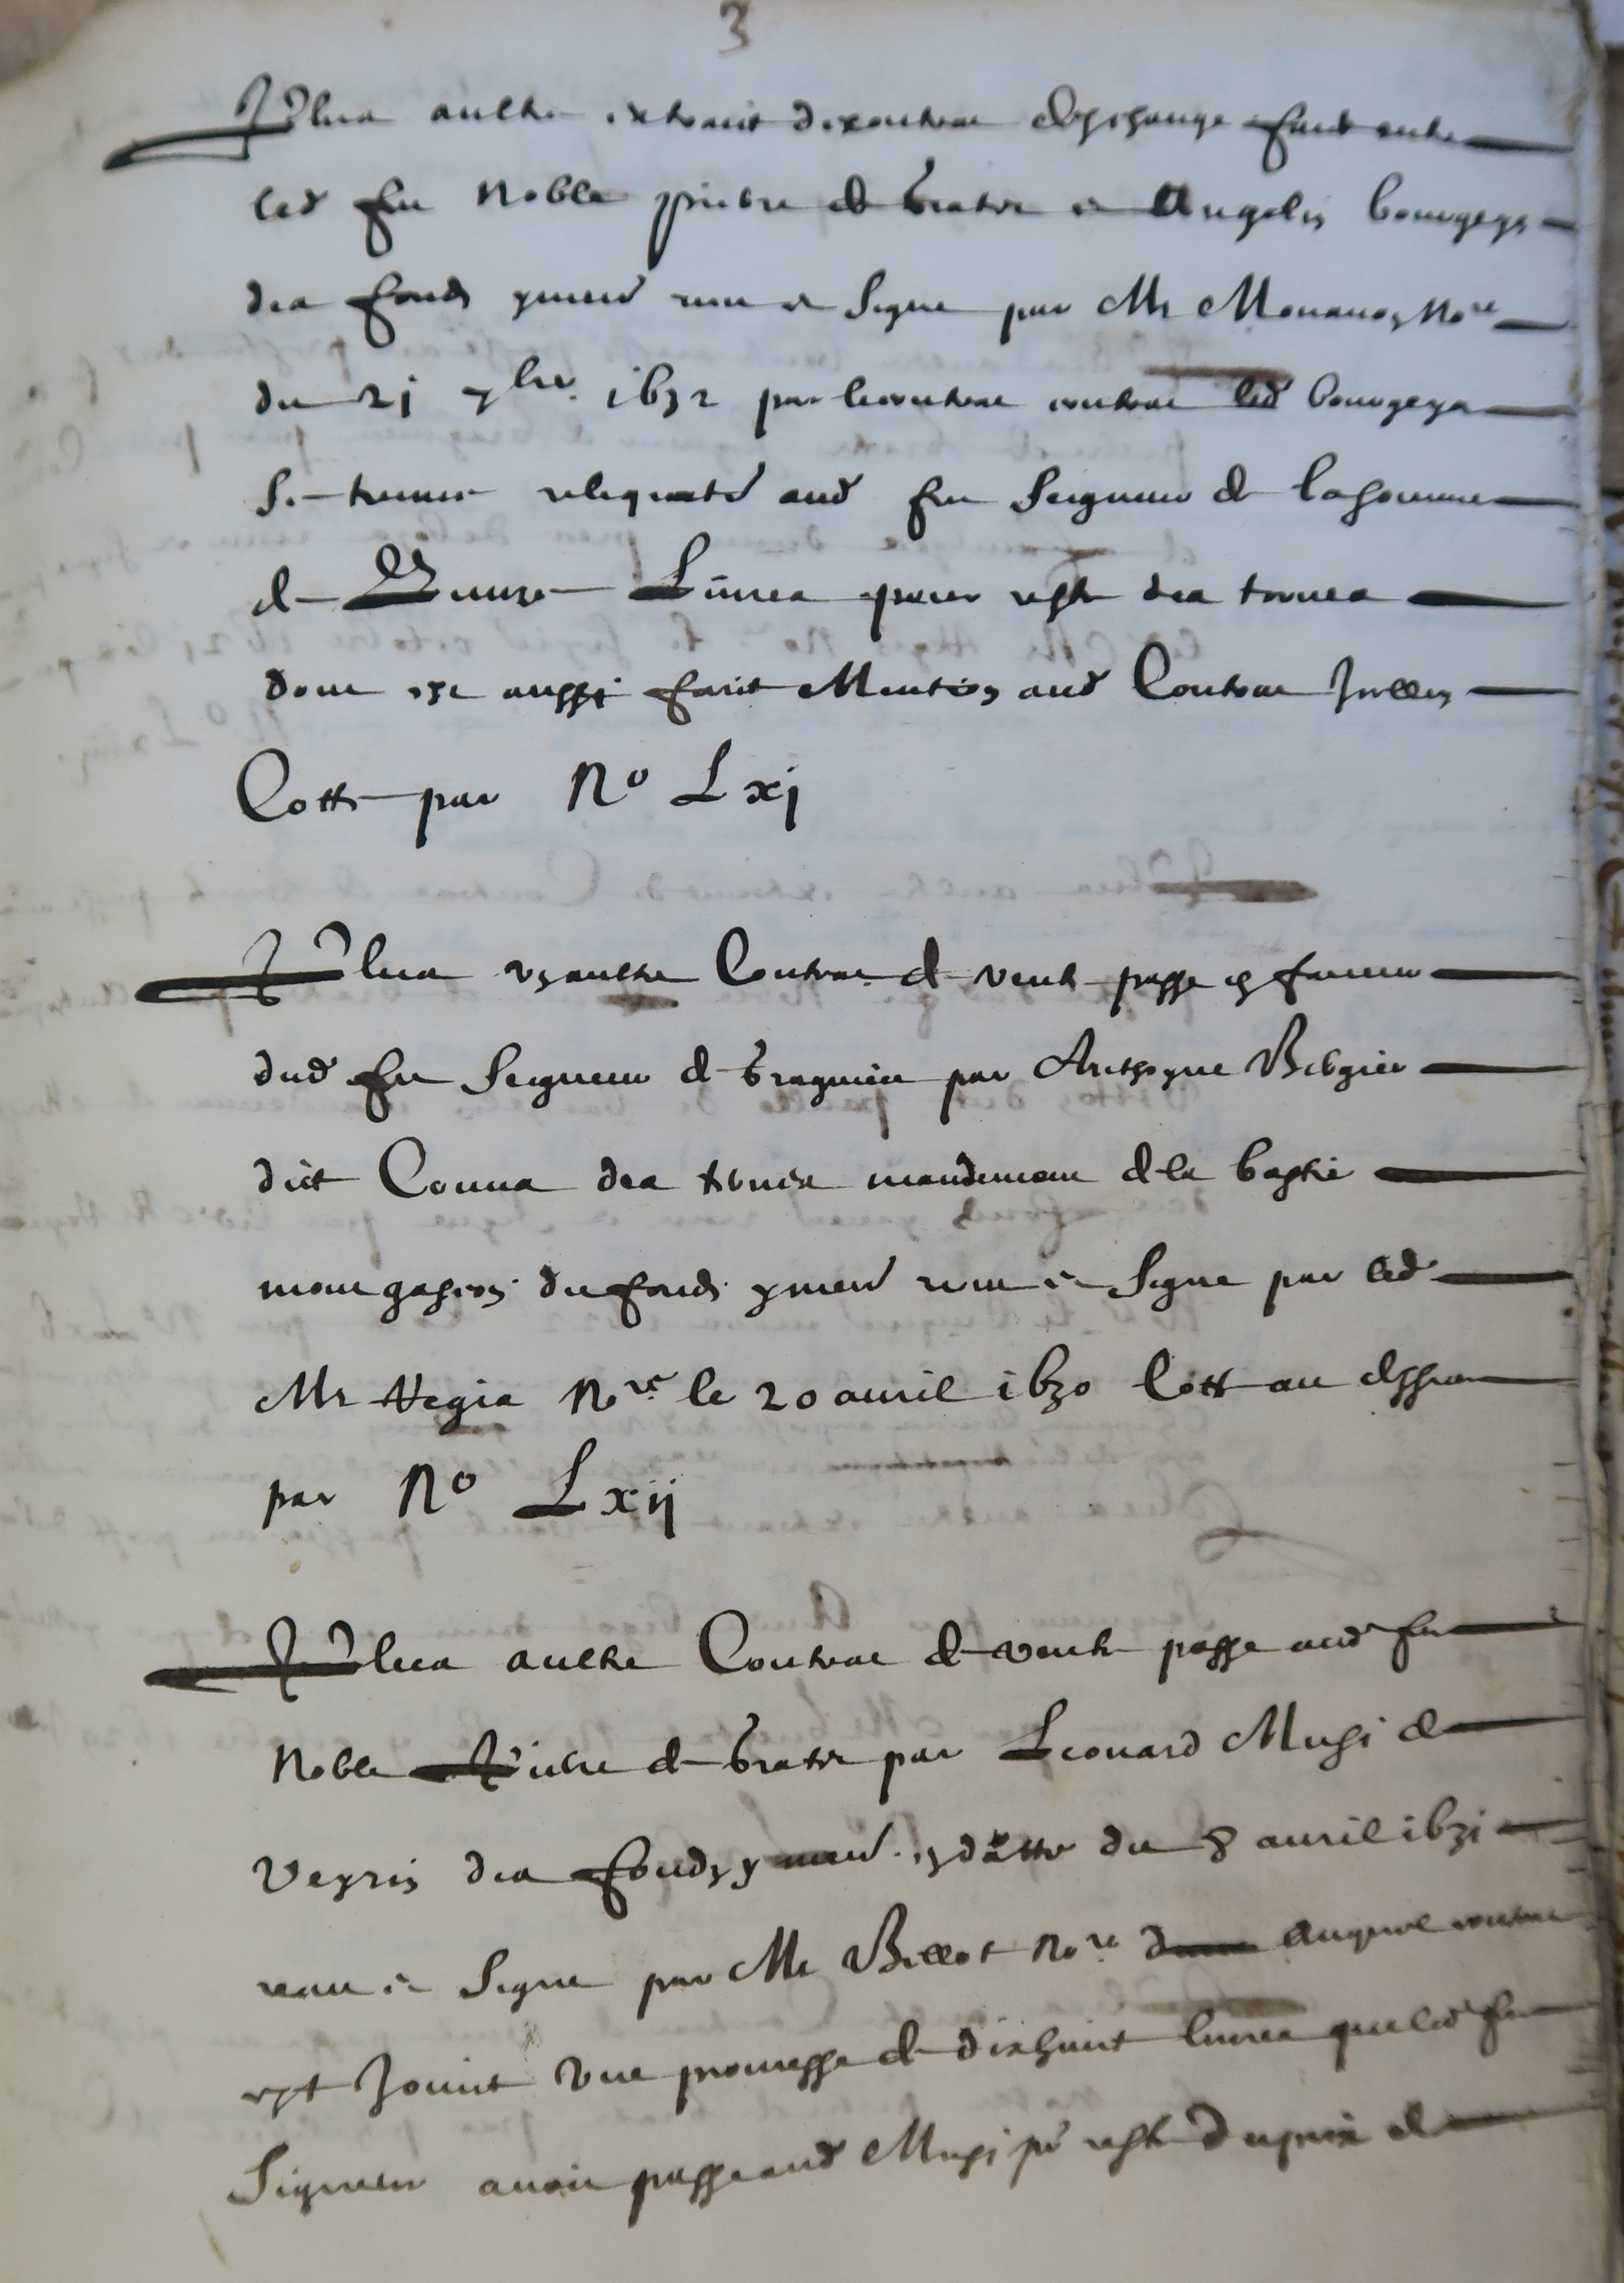 3
Plus aultre extraict de contract deschange faict entre
led feu Noble pierre de brator et Angelin bourgeys
des fondz y mend receu et Signe par Me Monavon Nore
du 21 7bre 1632 par lecontract led bourgeys
Se treuve reliquaté aud feu Seigneur de lasomme
de Livres pour reste des tornes
dont est aussi faict Mention aud Contract Jnllen
Cotté par No Lxj
Plus vn aultre Contract de vente passe en faveur
dud feu Seigneur de bragnieu par Anthoyne
dict Conna des mandement de la bastie
mont gascon du fondz y mend receu et Signe par led
Me Regis Nore le 20 avril 1630 Cotté au dessus
par No Lxij
Plus aultre Contract de vente passe aud feu
Noble Pierre de brator par Leonard Musi de
Veyrin des fondz y mend. en datte du 8 avril 1631
receu et Signe par Me Billot Nore Auquel contract
est Joinct vne promesse de dixhuict livres que led feu
Signeur avoir passe aud Musi pr reste du prix de